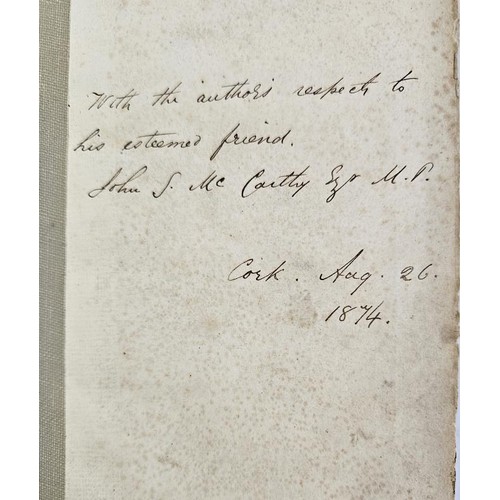 With the author's respects to
his esteemed friend.
John S. Mc Carthy Esqr M.P.
Cork. Aug. 26.
1874.